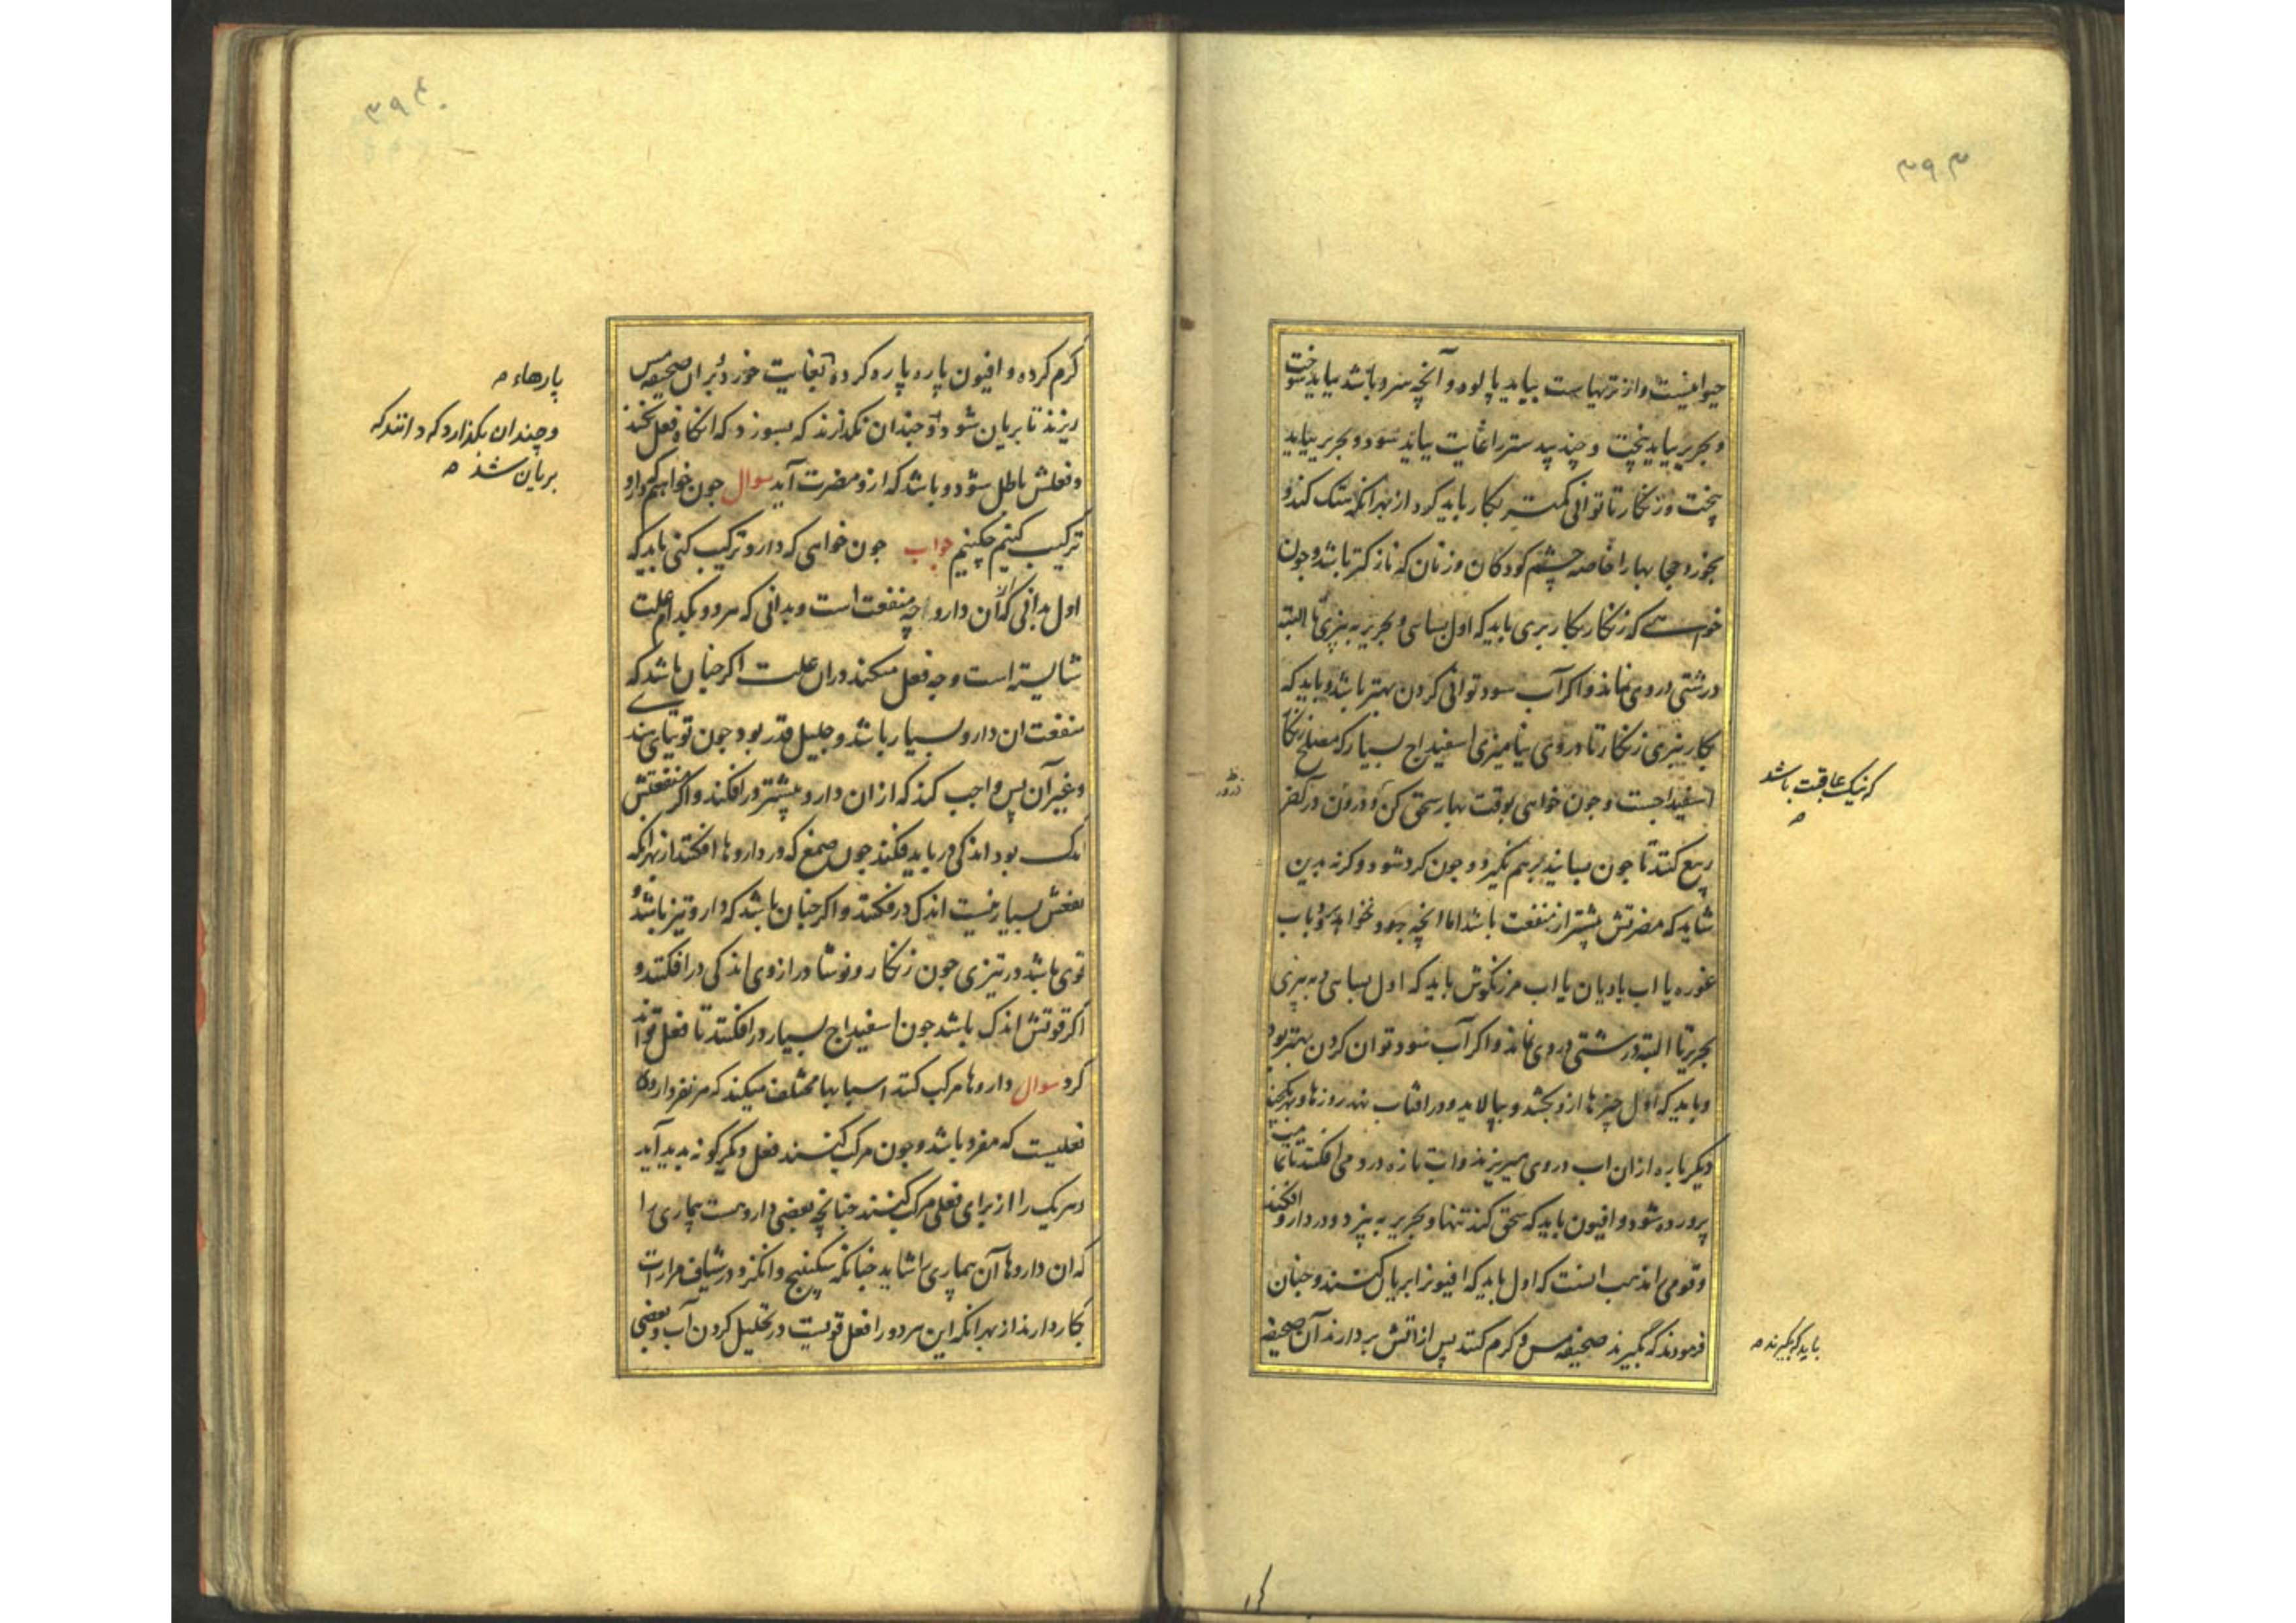 ۳۹۳
حیوانیست و از تریهاست بباید پالود و آنچه سرو باشد بباید سوخت
و بحریر بباید پخت و جند بیدستر را غایت بباید سود و بحریر بباید
پخت و زنکار تا توانی کمتر بکار باید کرد از بهر انکه تنک کند و
بخورد حجابها را خاصه چشم کودکان و زنان که نازکتر باشد و جون
خواهی که زنکار بکار بری باید که اول بسایی و بحریر به بیزی تا البته
درشتی در وی نماند و اکر آب سود توانی کردن بهتر باشد و باید که
بکار نبری زنکار تا در وی نیامیزی اسفیداج بسیار که مصلح زنکار
اسفیداجست و جون خواهی بوقت بهار سحق کن و
که نیک عاقبت باشد
ربیع کنند تا جون بسایند بر هم نکیرد و جون کرد شود و کرنه بدین
شاید که مضرتش بیشتر از منفعت باشد اما انچه بباب
غوره یا اب بادیان یا اب مرزنکوش باید که اول بسایی و به بیزی
بحریر تا البته درشتی در وی نماند و اکر آب سود توان کردن بهتر بود
و باید که اول چیزها از و بجشد و بپالاید و در افتاب نهد روزها و
دیکر باره از ان اب در وی میریزند و اب تازه درو می افکنند تا
پرورده شود و افیون باید که سحق کند تنها و بحریر به بیزد و در دارو افکند
و قومی را مذهب انست که اول باید که افیونرا بریان کنند و جنان
فرمودند که بکیرند صحیفه مس و کرم کنند پس از اتش بردارند آن صحیفه
باید که بکیرند
۳۹۴
کرم کرده و افیون پاره پاره کرده بغایت خورد بران صحیفه مس
پارهاء
ریزند تا بریان شود و جندان نکذارند که بسوزد که انکاه فعل نکند
و چندان بکذارد که دانند که
بریان شد
و فعلش باطل شود و باشد که ازو مضرت آید سوال جون خواهیم دارو
ترکیب کنیم چکنیم جواب جون خواهی که دارو ترکیب کنی باید که
اول بدانی که آن دارو را چه منفعت است و بدانی که هر دو بکدام علت
شایسته است و چه فعل میکند دران علت اکر جنان باشد که
منفعت ان دارو بسیار باشد و جلیل قدر بود جون توتیای هندی
و غیر آن پس واجب کند که از ان دارو بیشتر در افکند و اکر منفعتش
اندک بود اندکی در باید فکند جون صمغ که در داروها افکنند از بهر انکه
نفعش بسیار نیست اندک در فکند و اکر جنان باشد که دارو تیز باشد و
قوی باشد در تیزی جون زنکار و نوشادر از وی اندکی در افکنند و
اکر قوتش اندک باشد جون اسفیداج بسیار در افکنند تا فعل تواند
کرد سوال داروها مرکب کنند اسبابها مختلف میکند که هر نفر دارو را
فعلیست که مفرد باشد و جون مرکب کنند فعل دیکر کونه بدید آید
و هر یک را از برای فعلی مرکب کنند جنانچه بعضی دارو هست بیماری را
که ان داروها آن بیماری را شاید جنانکه سکبینج و انکزد در شیاف مرارات
بکار دارند از بهر انکه این هر دو را فعل قویست در تحلیل کردن آب و بعضی